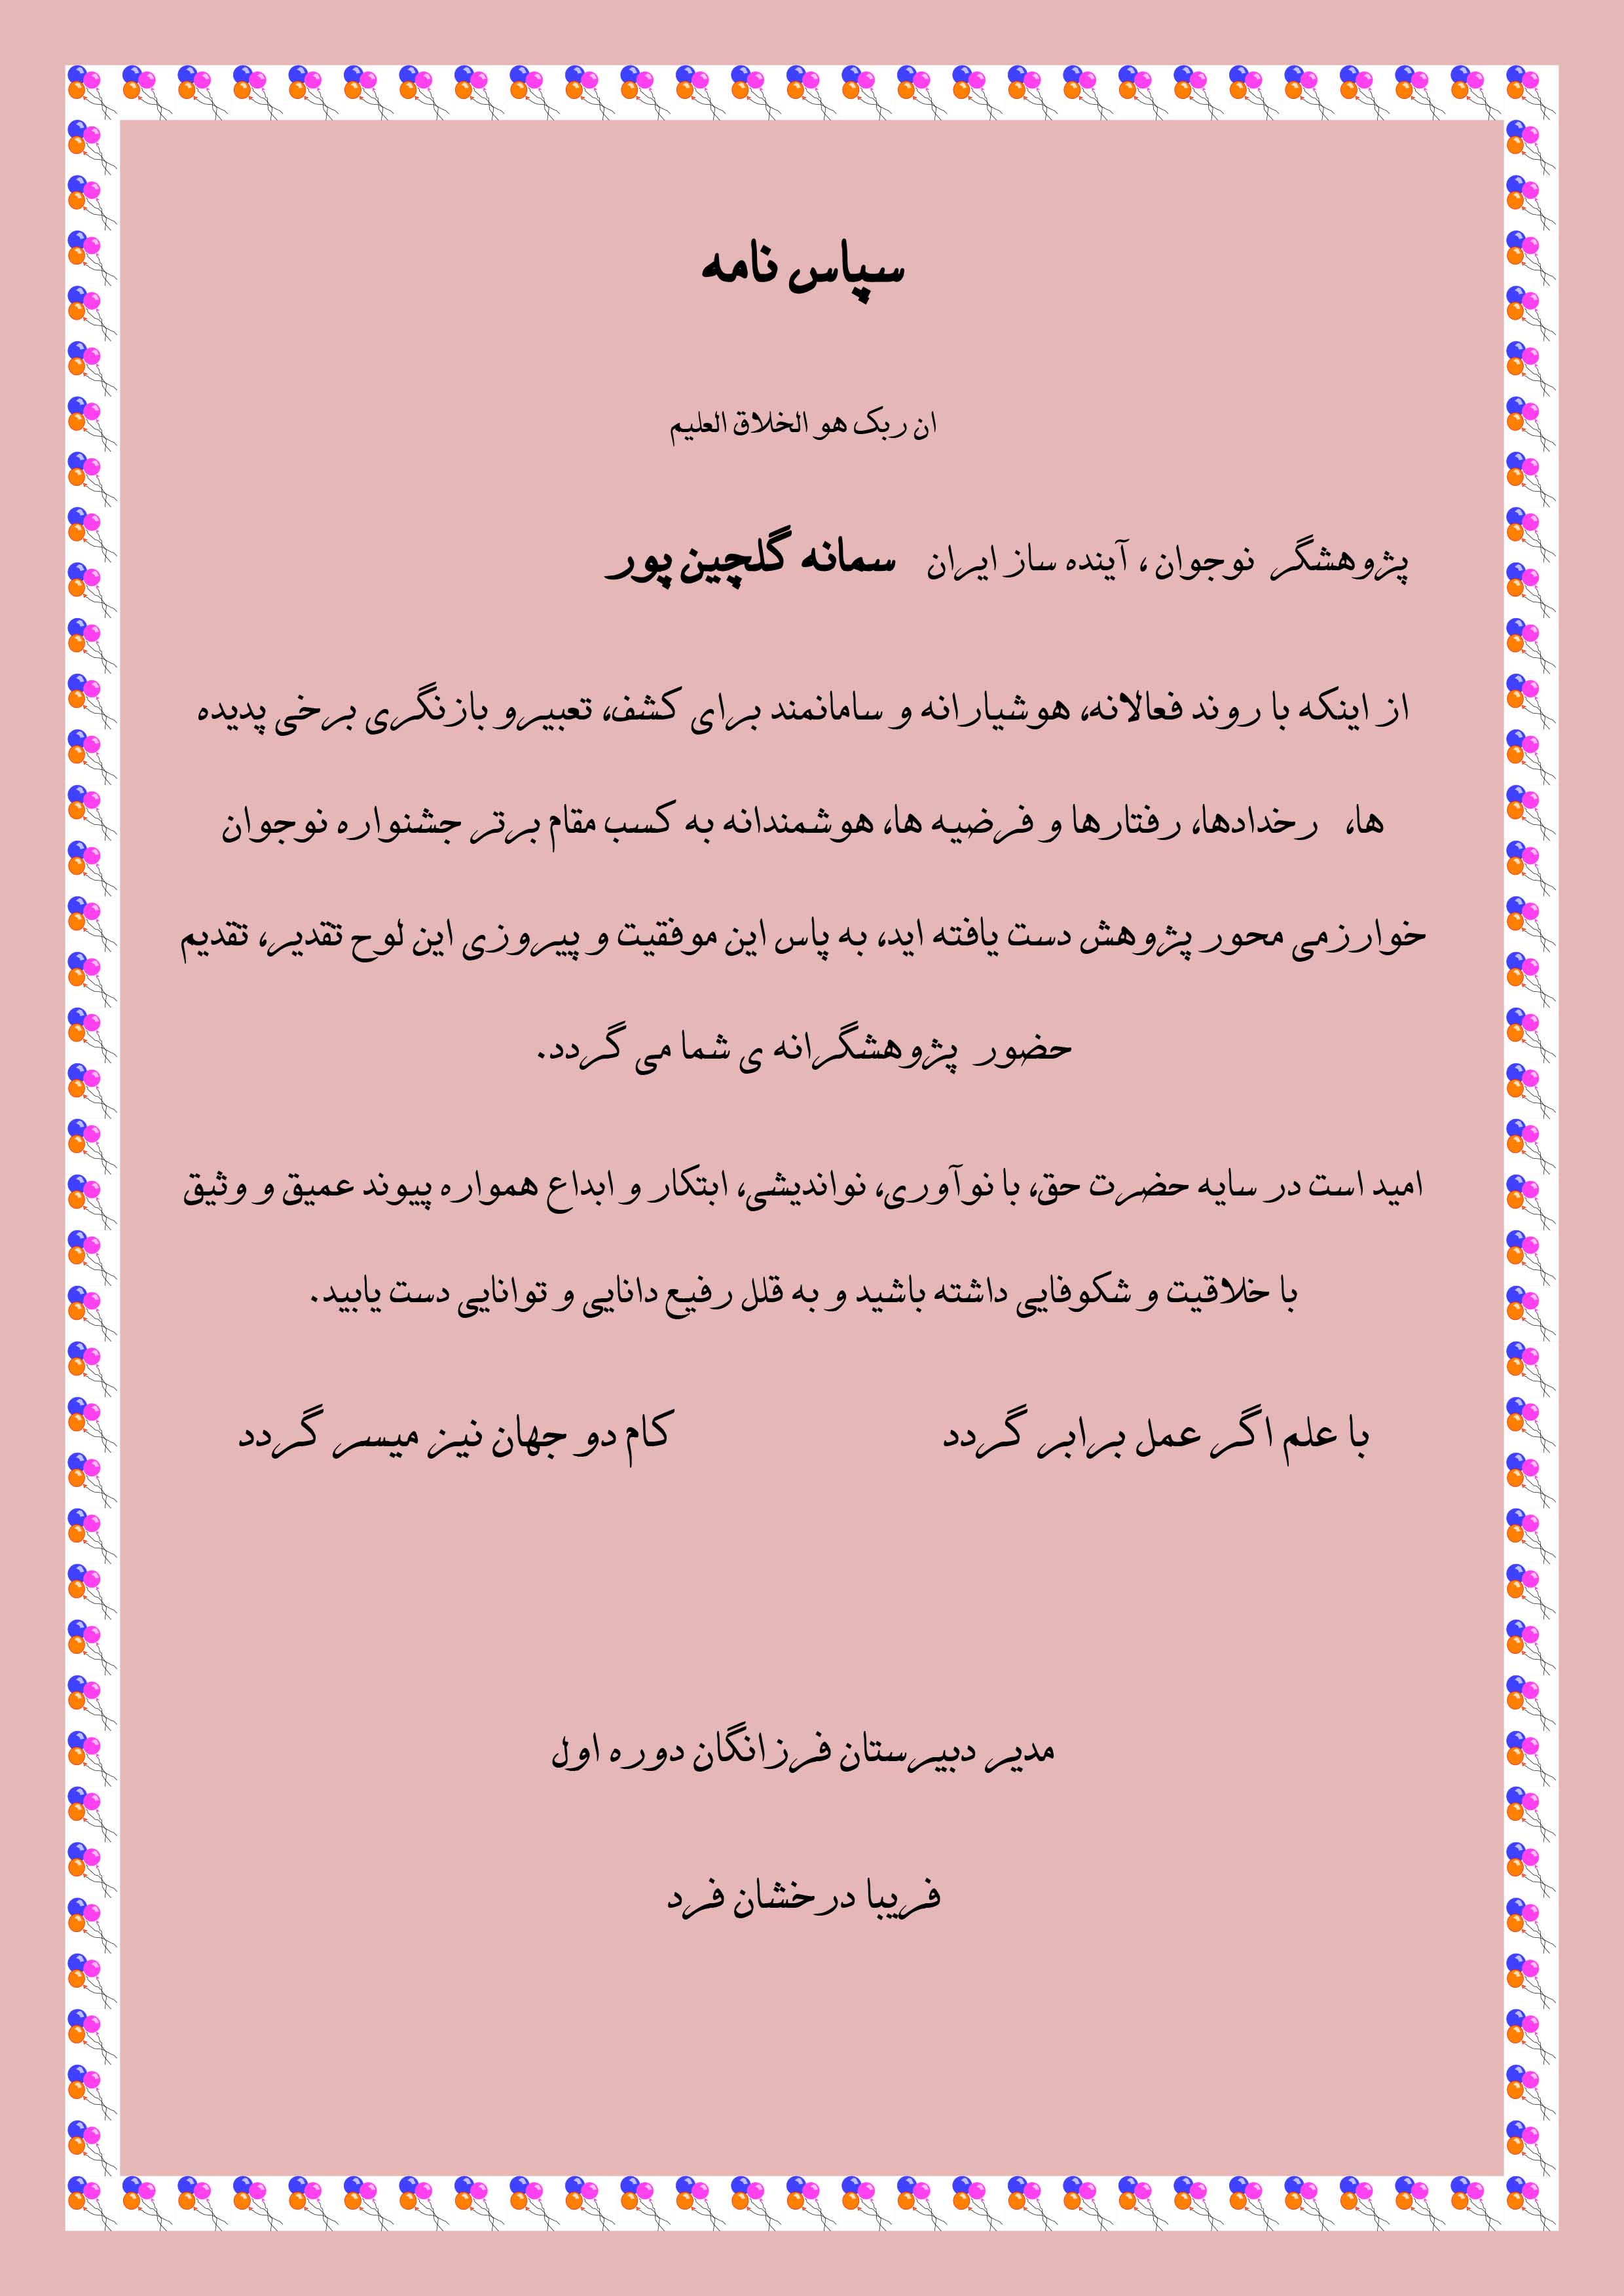 سپاس نامه
ان ربک هو الخلاق العلیم
پژوهشگر نوجوان ، آینده ساز ایران سمانه گلچین پور
از اینکه با روند فعالانه، هوشیارانه و سامانمند برای کشف، تعبیرو بازنگری برخی پدیده
ها، رخدادها، رفتارها و فرضیه ها، هوشمندانه به کسب مقام برتر جشنواره نوجوان
خوارزمی محور پژوهش دست یافته اید، به پاس این موفقیت و پیروزی این لوح تقدیر، تقدیم
حضور پژوهشگرانه ی شما می گردد.
امید است در سایه حضرت حق، با نوآوری، نواندیشی، ابتکار و ابداع همواره پیوند عمیق و وثیق
با خلاقیت و شکوفایی داشته باشید و به قلل رفیع دانایی و توانایی دست یابید.
با علم اگر عمل برابر گردد کام دو جهان نیز میسر گردد
مدیر دبیرستان فرزانگان دوره اول
فریبا درخشان فرد